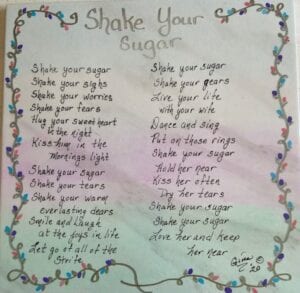 Shake Your
Sugar
Shake your sugar
Shake your sighs
Shake your worries
Shake your fears
Hug your sweet heart
in the night
Kiss him in the
mornings light
Shake your sugar
Shake your tears
Shake your warm
everlasting dears
Smile and laugh
at the joys in life
Let go of all of the
Strife
Shake your sugar
Shake your gears
Live your life
with your wife
Dance and sing
Put on those rings
Shake your sugar
Hold her near
Kiss her often
Dry her tears
Shake your sugar
Shake your sugar
Love her and keep
her near
©
20